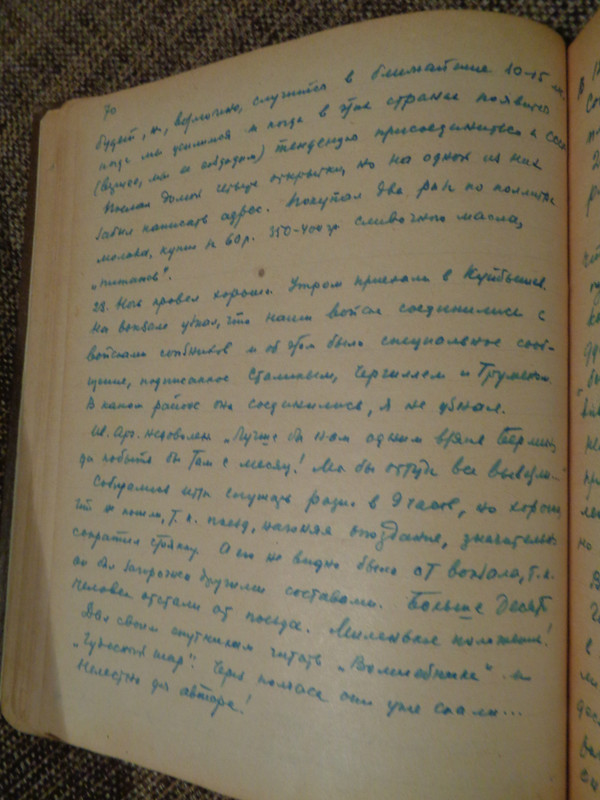 70
будет, и, возможно, случится в ближайшие 10-15 л.
когда мы усилимся и когда в этой стране появится
(вернее, мы и создадим) тенденцию присоединиться к СССР
Послал домой четыре открытки, но на одной из них
забыл написать адрес. Покупал два раза по поллитра
молока, купил и 60 р. 350-400 гр сливочного масла,
„питаюсь".
28. Ночь провел хорошо. Утром приехали в Куйбышев.
На вокзале узнал, что наши войска соединились с
войсками союзников и об этом было специальное сооб-
щение, подписанное Сталиным, Черчиллем и Трумэном.
В каком районе они соединились, я не узнал.
Ив. Арх. недоволен. „Лучше бы нам одним взять Берлин,
да побыть бы там с месяц! Мы бы оттуда все вывезли."
Собирались идти слушать радио в 9 часов, но хорошо,
что не пошли, т.к. поезд, нагоняя опоздание, значительно
сократил стоянку. А его не видно было от вокзала, т.к.
он был загорожен другими составами. Больше десяти
человек отстали от поезда. Миленькое положение!
Дал своим спутникам читать „Волшебника" и
„Чудесный шар". Через полчаса они уже спали...
Нелестно для автора!